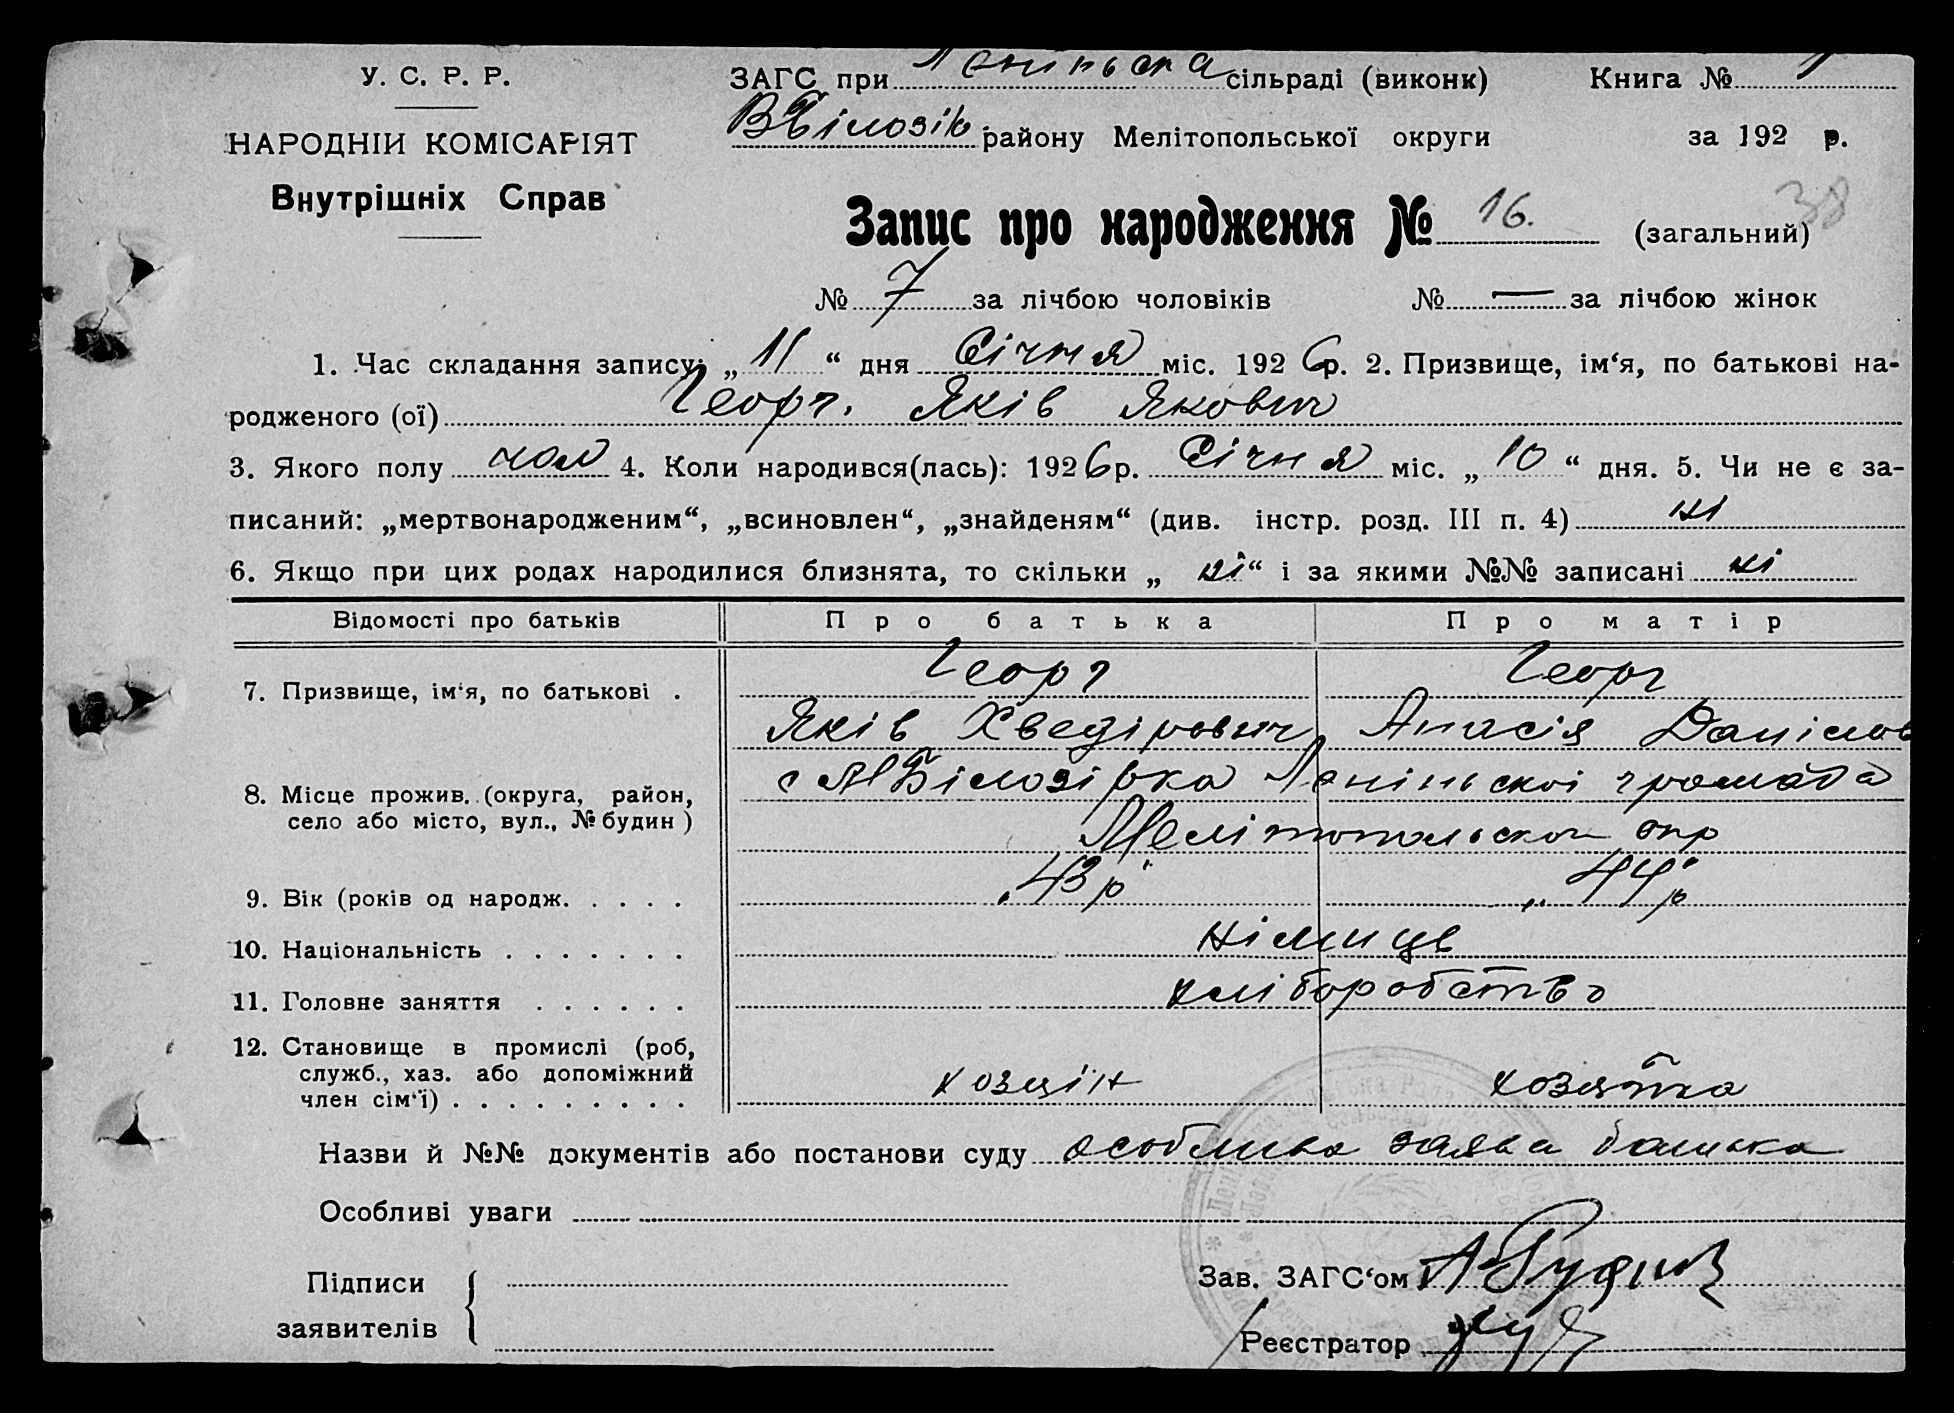 У. С. Р. Р.
НАРОДНІЙ КОМІСАРІЯТ
Внутрішніх Справ
ЗАГС при Леніньска сільраді (виконк) Книга №
ВБілозір. району Мелітопольської округи за 192 р.
38
Запис про народження № 16. (загальний)
№ 7 за лічбою чоловіків № — за лічбою жінок
1. Час складання запису: „ 11 “ дня Січня міс. 1926 р. 2. Призвище, ім‘я, по батькові на-
родженого (ої) Георг. Яків Якович
3. Якого полу чол 4. Коли народився(лась): 1926 р. Січня міс. „ 10 “ дня. 5. Чи не є за-
писаний: „мертвонародженим“, „всиновлен“, „знайденям“ (див. інстр. розд. III п. 4) ні
6. Якщо при цих родах народилися близнята, то скільки „ ні “ і за якими №№ записані ні
Відомості про батьків Про батька Про матір
Георг Георг
7. Призвище, ім‘я, по батькові .
Яків Хведірович Анасія Данілов
8. Місце прожив. (округа, район, с Білозірка Леніньскоі громада
село або місто, вул., № будин ) Мелітопольскои окр
9. Вік (років од народж. . . . . „43 р“ „44 р“
10. Національність . . . . . . . німиців
11. Головне заняття . . . . . . хліборобство
12. Становище в промислі (роб,
служб., хаз. або допоміжний
член сім‘ї) . . . . . . . . . хозяїн хозяйка
Назви й №№ документів або постанови суду особлива заява батька
Особливі уваги
Підписи
заявителів
Зав. ЗАГС‘ом
Реєстратор